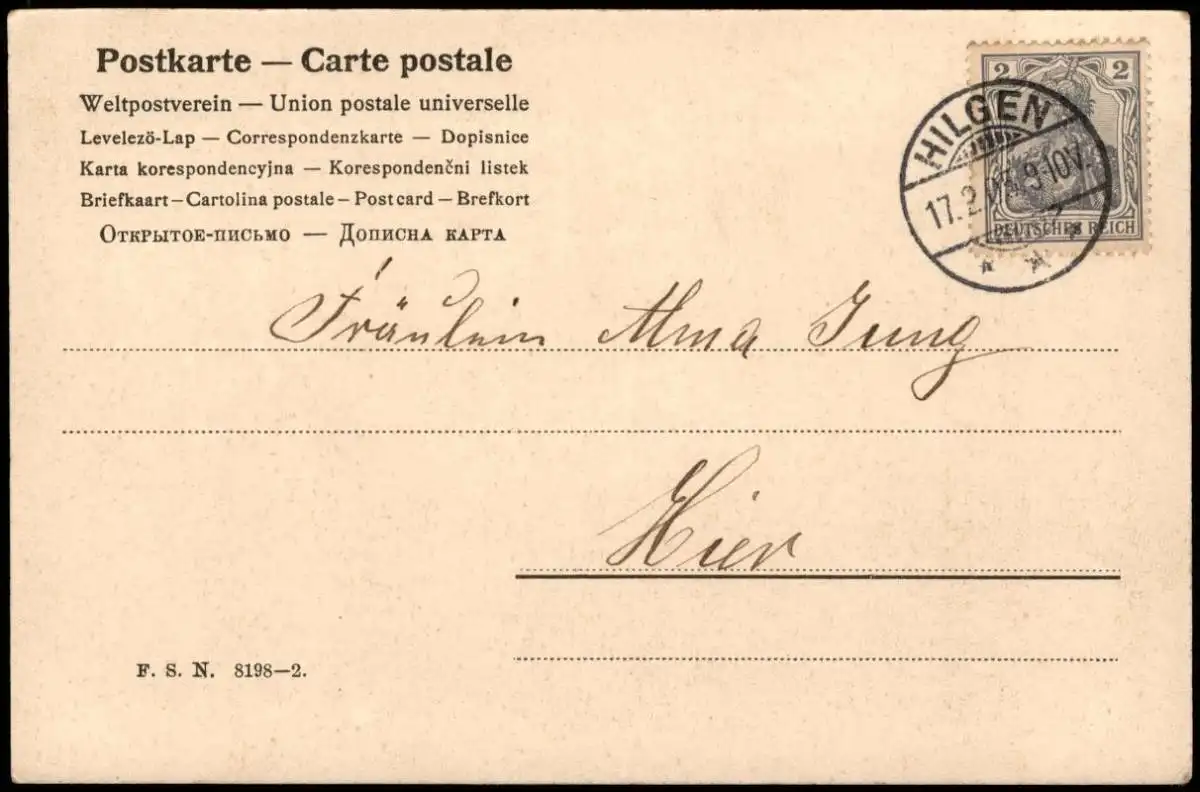 Postkarte — Carte postale
Weltpostverein — Union postale universelle
Levelező-Lap — Correspondenzkarte — Dopisnice
Karta korespondencyjna — Korespondenčni listek
Briefkaart – Cartolina postale – Post card – Brefkort
Открытое-письмо — Дописна карта
2 2
DEUTSCHES REICH
HILGEN
17.2. 9-10V.
Fräulein Alma Jung
Hier
F. S. N. 8198–2.